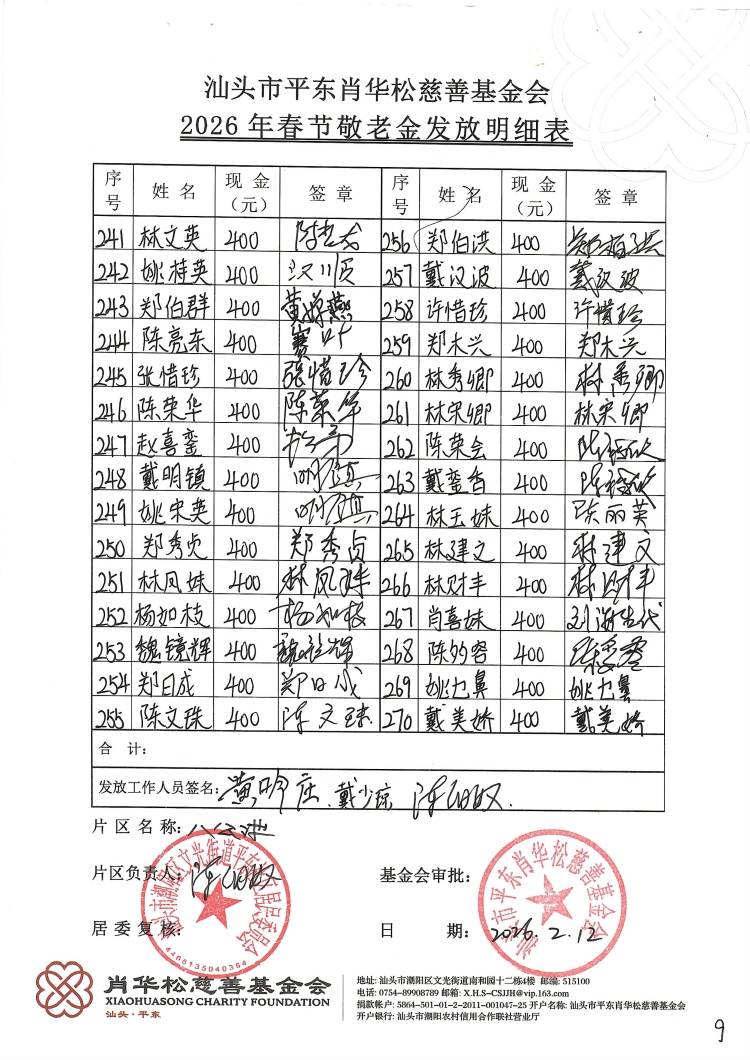 汕头市平东肖华松慈善基金会
2026年春节敬老金发放明细表
序号 姓名 现金（元） 签章 序号 姓名 现金（元） 签章
241 林文英 400 256 郑伯洪 400 郑伯洪
242 姚桂英 400 汉川顺 257 戴汉波 400 戴汉波
243 郑伯群 400 258 许惜珍 400 许惜珍
244 陈亮东 400 259 郑木兴 400 郑木兴
245 张惜珍 400 张惜珍 260 林秀卿 400 林秀卿
246 陈荣华 400 陈荣华 261 林宋卿 400 林宋卿
247 赵喜銮 400 262 陈荣会 400
248 戴明镇 400 明镇 263 戴銮香 400
249 姚宋英 400 明镇 264 林玉妹 400 陈丽英
250 郑秀贞 400 郑秀贞 265 林建文 400 林建文
251 林凤妹 400 林凤妹 266 林财丰 400 林财丰
252 杨如枝 400 杨如枝 267 肖喜妹 400
253 魏镜辉 400 魏镜辉 268 陈 容 400
254 郑日成 400 郑日成 269 姚 鼻 400 姚 鼻
255 陈文珠 400 陈文珠 270 戴美娇 400 戴美娇
合 计：
发放工作人员签名： 戴少琼
片区名称：
片区负责人：
基金会审批：
居委复核：
日 期：2026.2.12
汕头市潮阳区文光街道平东社区居民委员会
4405135040364
汕头市平东肖华松慈善基金会
肖华松慈善基金会
XIAOHUASONG CHARITY FOUNDATION
汕头·平东
地址: 汕头市潮阳区文光街道南和园十二栋4楼 邮编: 515100
电话: 0754-89908789 邮箱: X.H.S-CSJJH@vip.163.com
捐款帐户: 5864-501-01-2-2011-001047-25 开户名称: 汕头市平东肖华松慈善基金会
开户银行: 汕头市潮阳农村信用合作联社营业厅
9